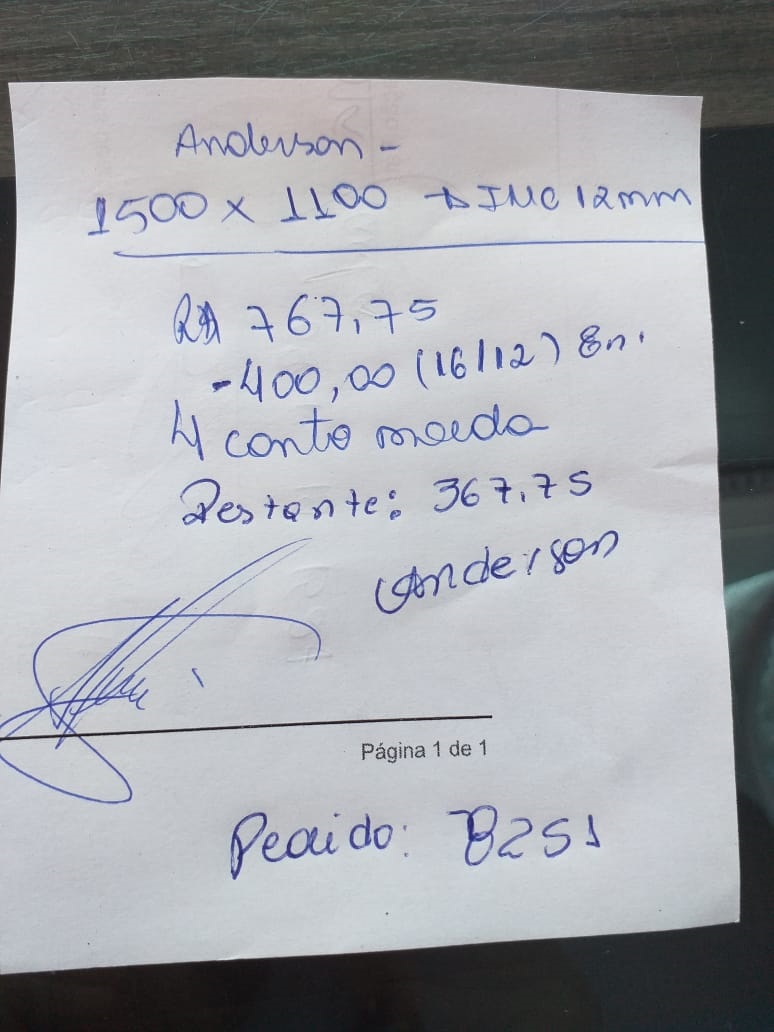 Anderson -
1500 x 1100 → INC 12mm
R$ 767,75
-400,00 (16/12) En.
4 conto moeda
Restante: 367,75
Anderson
Página 1 de 1
Pedido: 8251